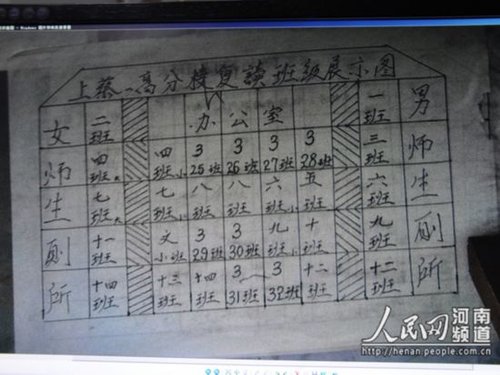 上蔡一高分校复读班级展示图
女 二班 办公室 一班 男
师 四班大 四班小 3 25班 3 26班 3 27班 3 28班 三班 师
生 七班大 七班小 八班 八班 六班小 五班 六班 生
厕 十一班 文小班 3 29班 3 30班 九班小 十班 九班 厕
所 十四班 十三班 十四班 3 31班 3 32班 十二班 十二班 所
人民网 河南频道
http://henan.people.com.cn